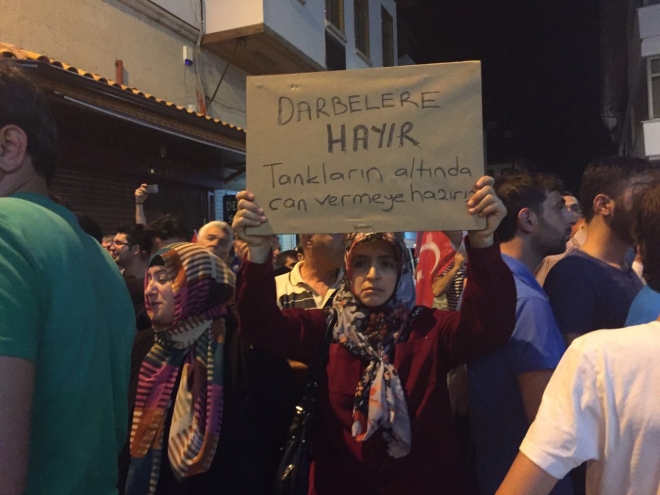 DARBELERE
HAYIR
Tankların altında
can vermeye hazırız